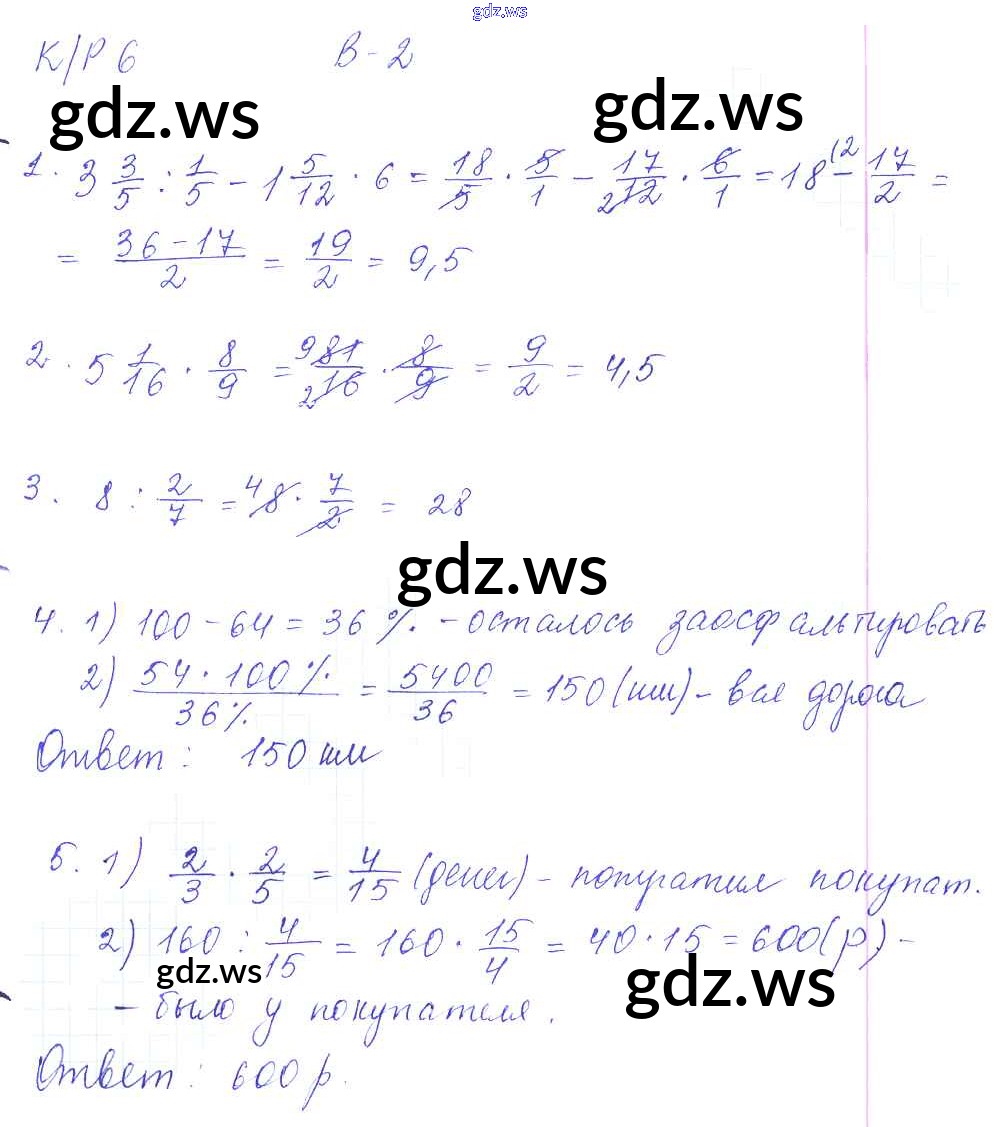 gdz.ws
К/Р 6 В-2
gdz.ws gdz.ws
1. 3 3/5 : 1/5 - 1 5/12 · 6 = 18/5 · 5/1 - 17/12 2 · 6/1 = 18 (2 - 17/2 =
= 36-17/2 = 19/2 = 9,5
2. 5 1/16 · 8/9 = 9 81/16 2 · 8/9 = 9/2 = 4,5
3. 8 : 2/7 = 4 8 · 7/2 = 28
gdz.ws
4. 1) 100 - 64 = 36 % - осталось заасфальтировать
2) 54 · 100 %/36% = 5400/36 = 150 (км) - вся дорога
Ответ: 150 км
5. 1) 2/3 · 2/5 = 4/15 (денег) - потратил покупат.
2) 160 : 4/15 = 160 · 15/4 = 40 · 15 = 600 (р) -
gdz.ws gdz.ws
- было у покупателя.
Ответ: 600 р.